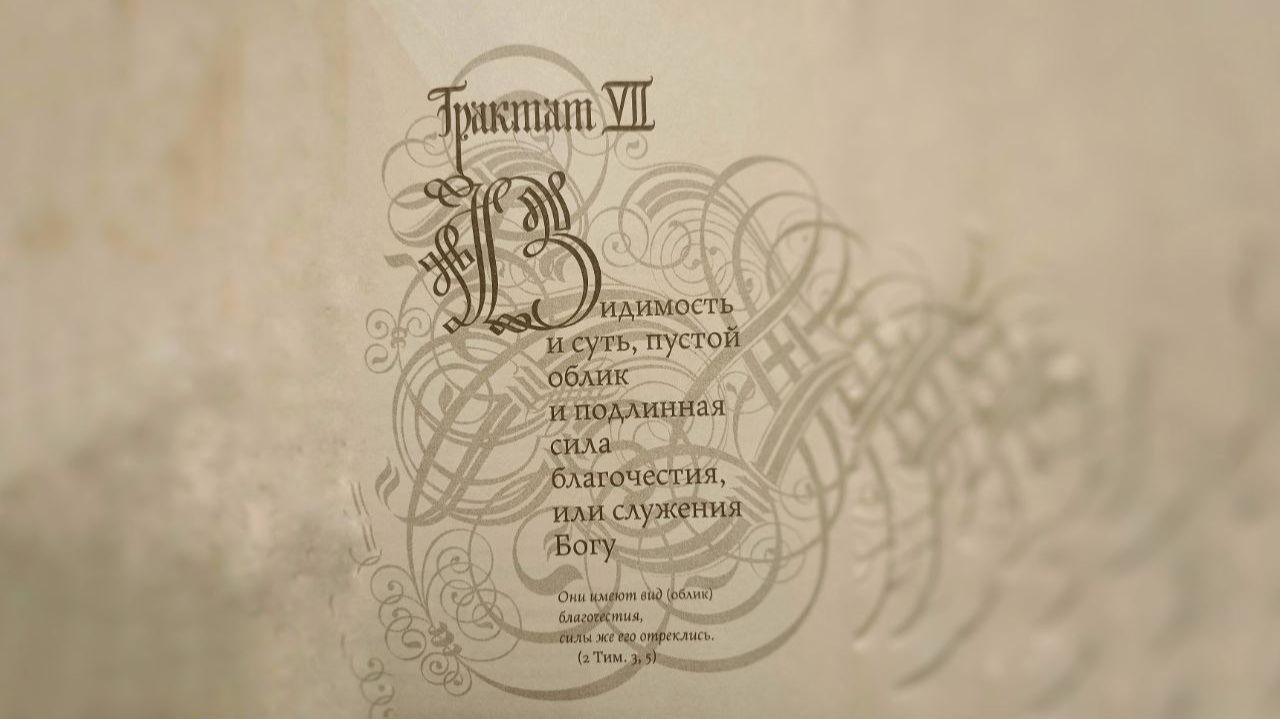 Трактат VII
Видимость
и суть, пустой
облик
и подлинная
сила
благочестия,
или служения
Богу
Они имеют вид (облик)
благочестия,
силы же его отреклись.
(2 Тим. 3, 5)